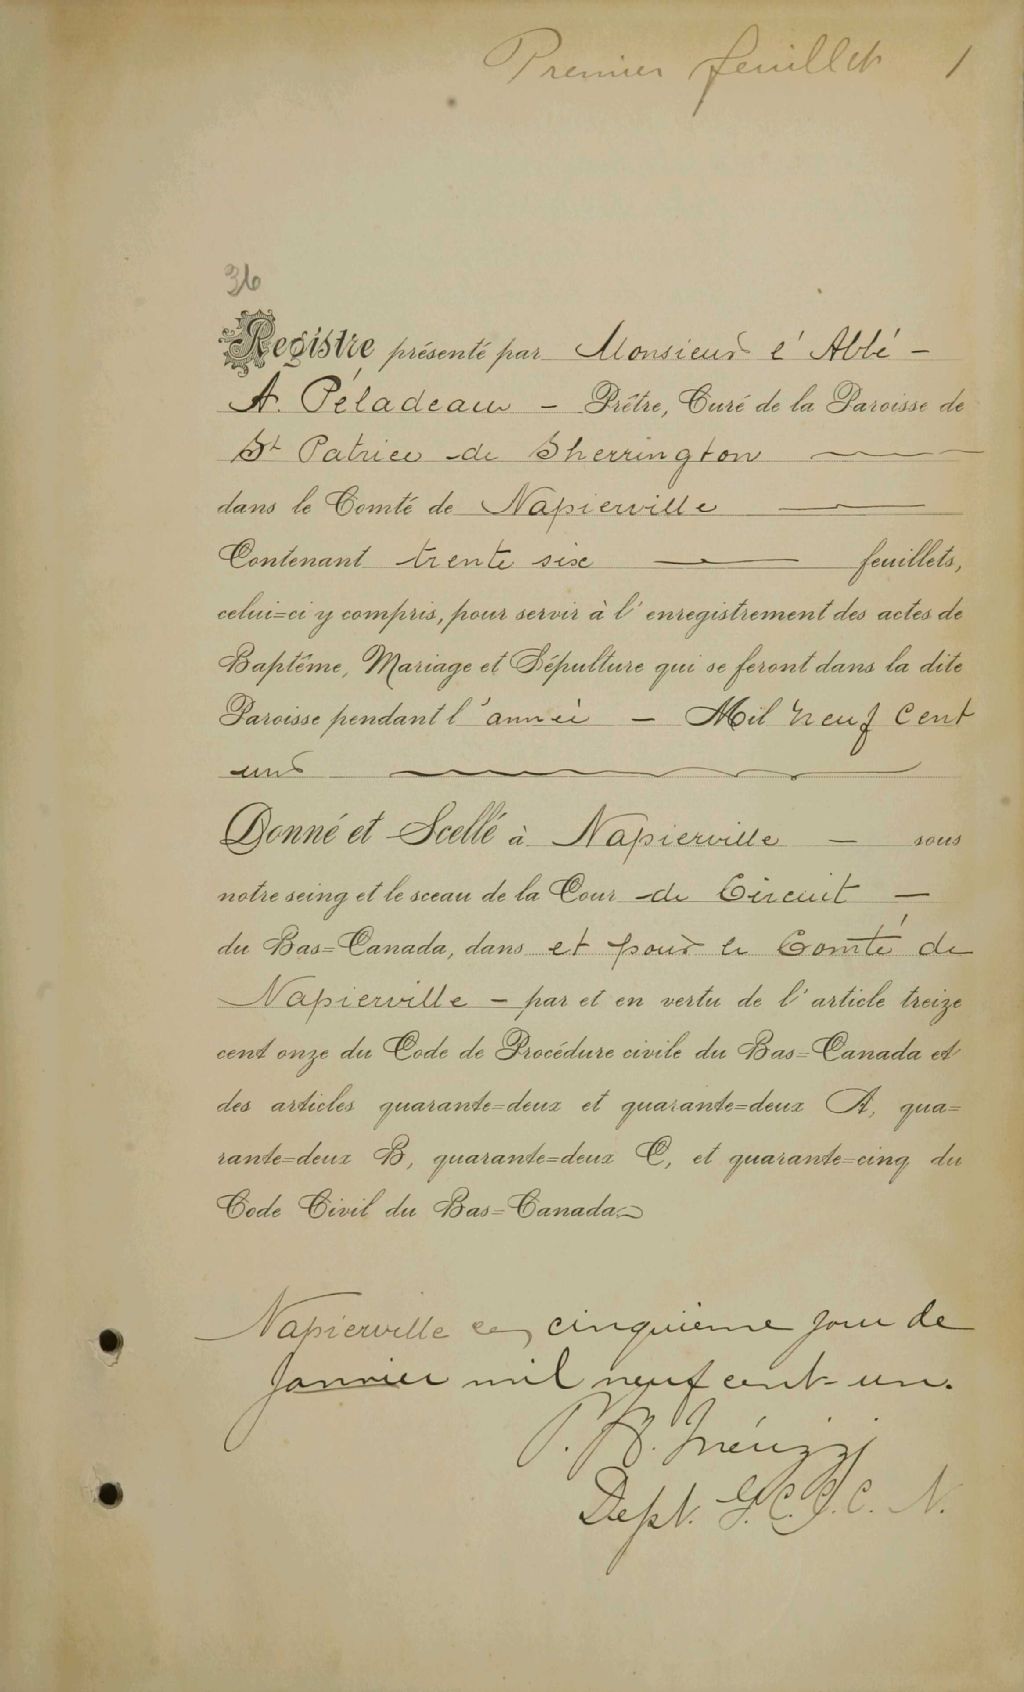 Premier feuillet 1
36
Registre présenté par Monsieur l'Abbé –
A. Péladeau – Prêtre, Curé de la Paroisse de
St Patrice de Sherrington
dans le Comté de Napierville
Contenant trente six feuillets,
celui=ci y compris, pour servir à l'enregistrement des actes de
Baptême, Mariage et Sépulture qui se feront dans la dite
Paroisse pendant l'année – Mil neuf cent
un
Donné et Scellé à Napierville – sous
notre seing et le sceau de la Cour de Circuit –
du Bas=Canada, dans et pour le Comté de
Napierville – par et en vertu de l'article treize
cent onze du Code de Procédure civile du Bas=Canada et
des articles quarante=deux et quarante=deux A, qua=
rante=deux B, quarante=deux C, et quarante=cinq du
Code Civil du Bas=Canada.
Napierville ce cinquième jour de
Janvier mil neuf cent un.
Dept. G.C.C.C. N.